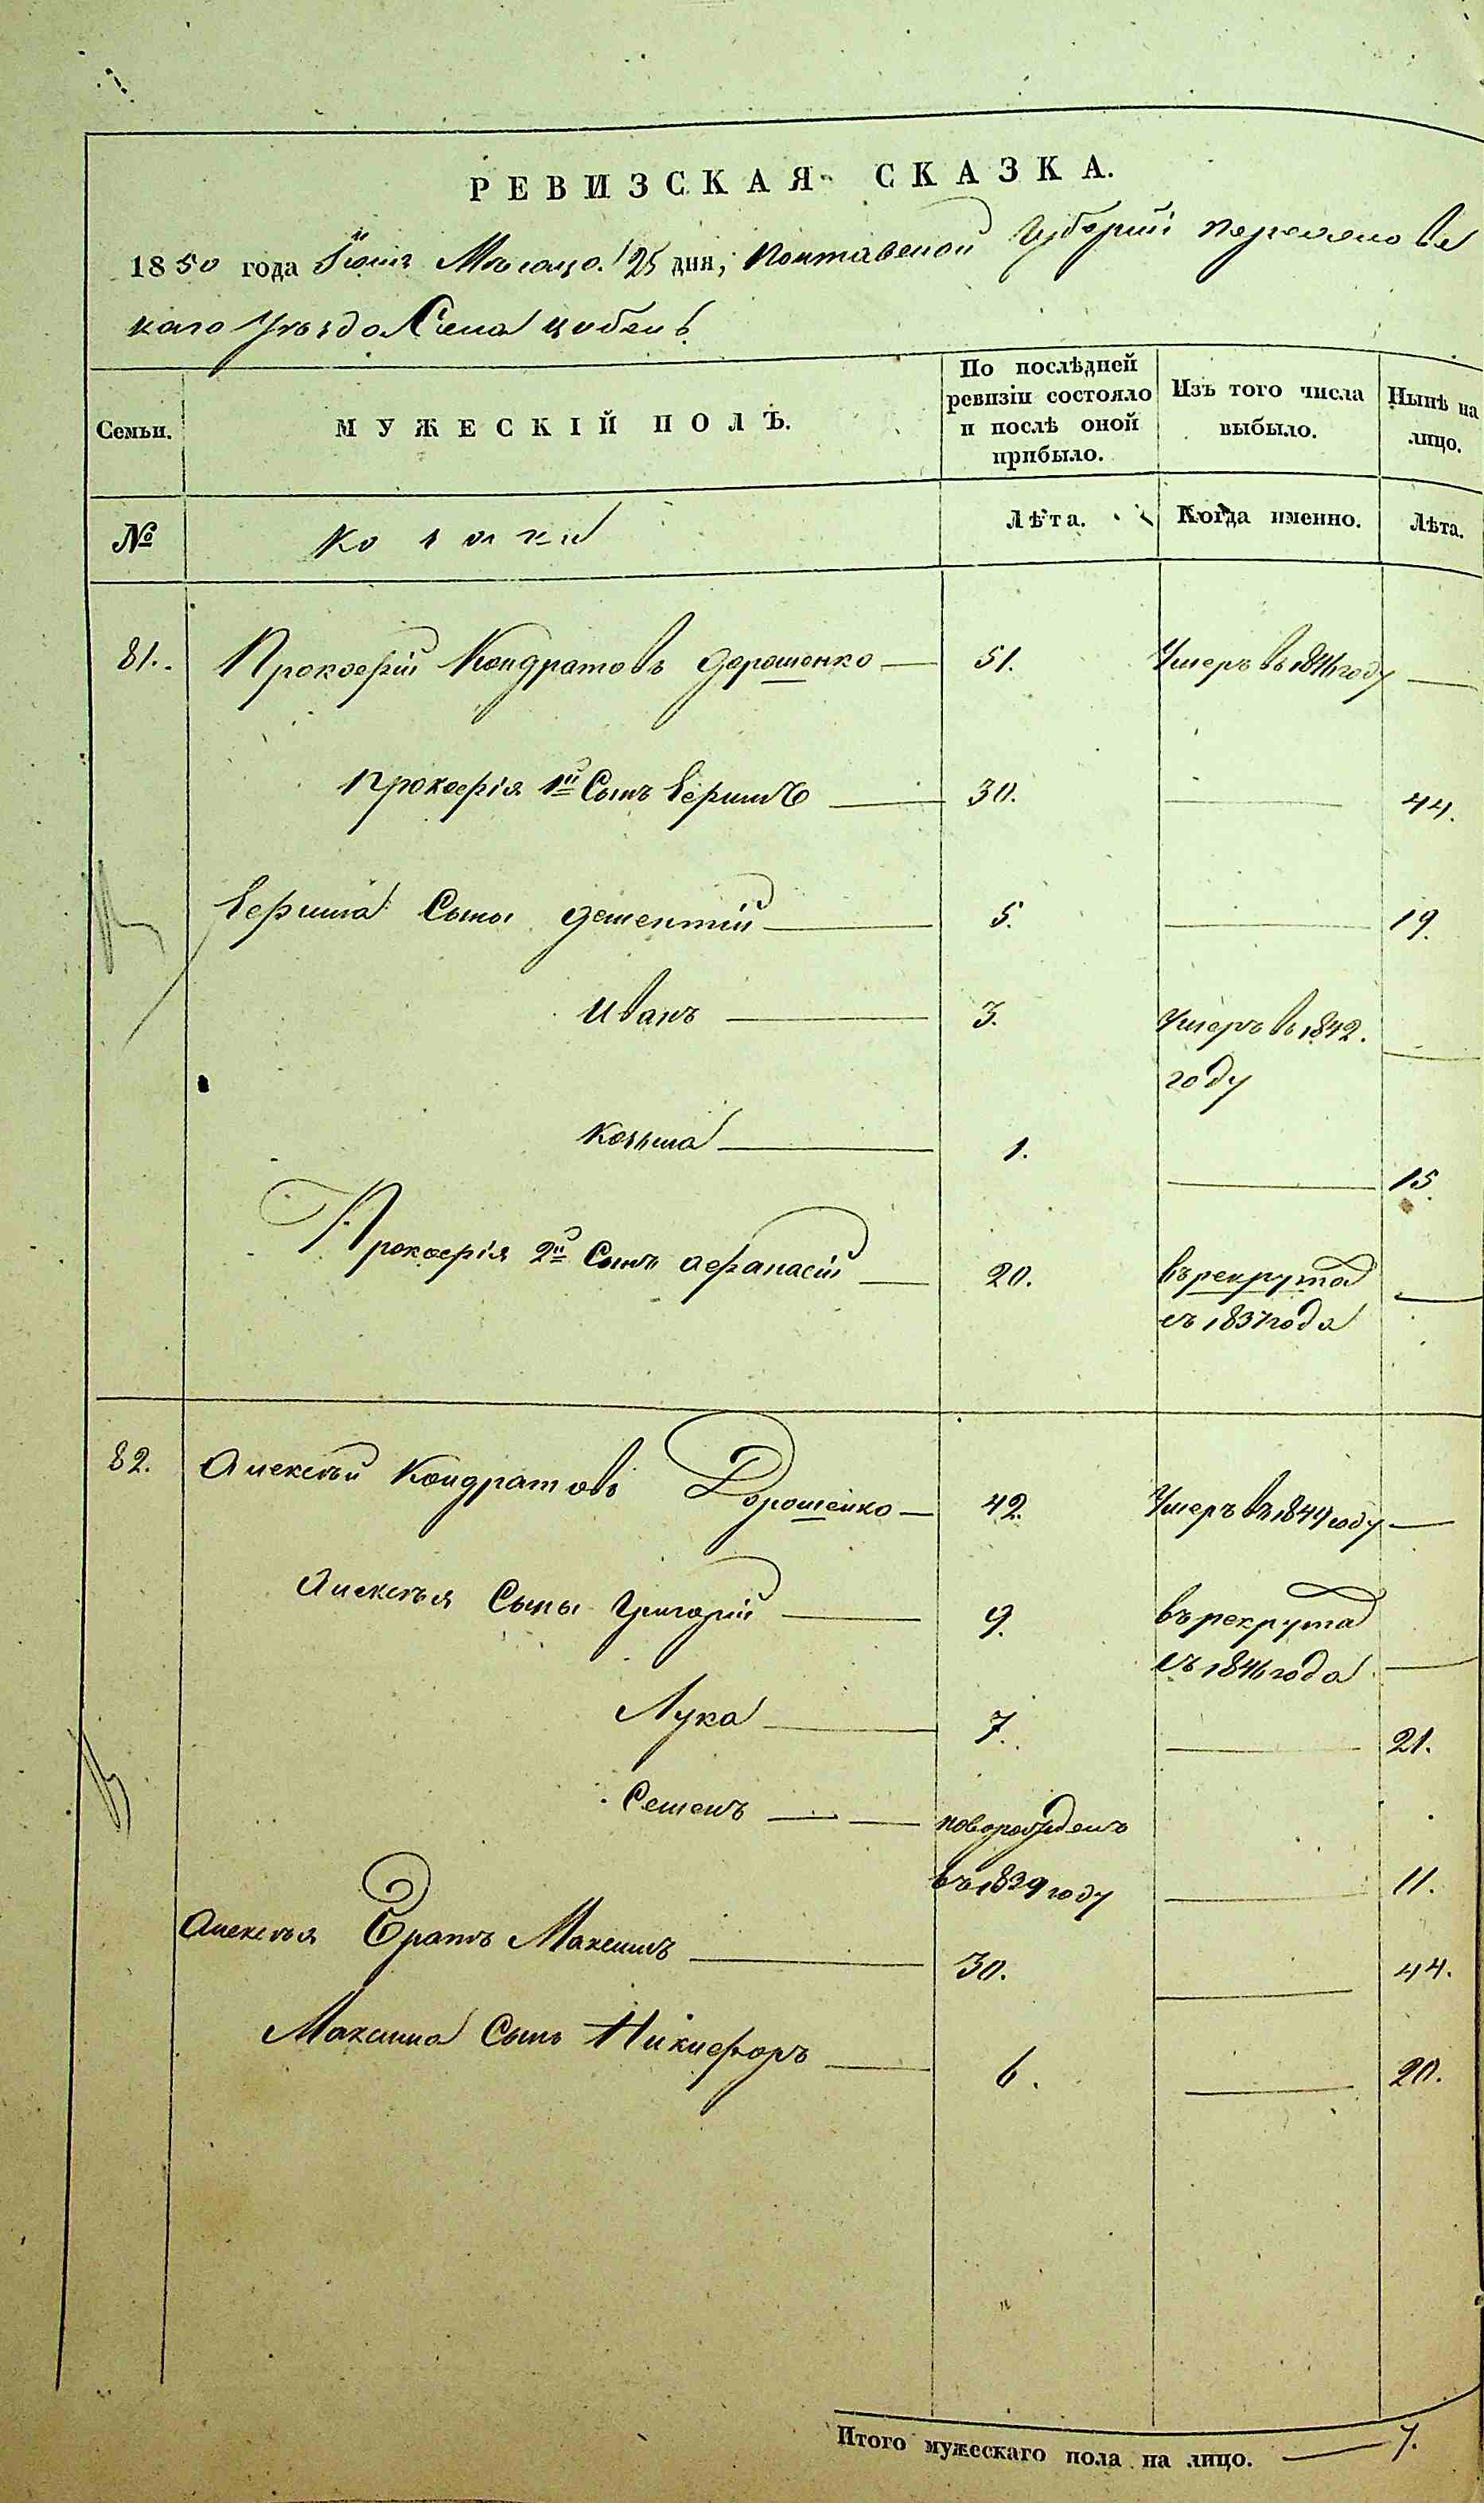 РЕВИЗСКАЯ СКАЗКА.
1850 года Іюня Мѣсяца 25 дня, Полтавской Губерніи Переяслов
скаго Уѣзда Села Цибель
Семьи. МУЖЕСКІЙ ПОЛЪ. По послѣдней ревизіи состояло и послѣ оной прибыло. Изъ того числа выбыло. Нынѣ на лицо.
№ Козаки Лѣта. Когда именно. Лѣта.
81. Прокофій Кондратовъ Дорошенко — 51. Умеръ въ 1846 году —
Прокофія 1й Сынъ Ефимъ — 30. — 44.
Ефима Сыны Дементій — 5. — 19.
Иванъ — 3. Умеръ въ 1842. —
году
Козьма — 1. — 15.
Прокофія 2й Сынъ Афанасій — 20. въ рекрута —
съ 1837 года
82. Алексѣй Кондратовъ Дорошенко — 42. Умеръ въ 1844 году —
Алексѣя Сыны Григорій — 9. въ рекрута
съ 1846 года —
Лука — 7. — 21.
Семенъ — — новорожденъ
въ 1839 году — 11.
Алексѣя Братъ Максимъ — 30. — 44.
Максима Сынъ Никифоръ — 6. — 20.
Итого мужескаго пола на лицо. — 7.